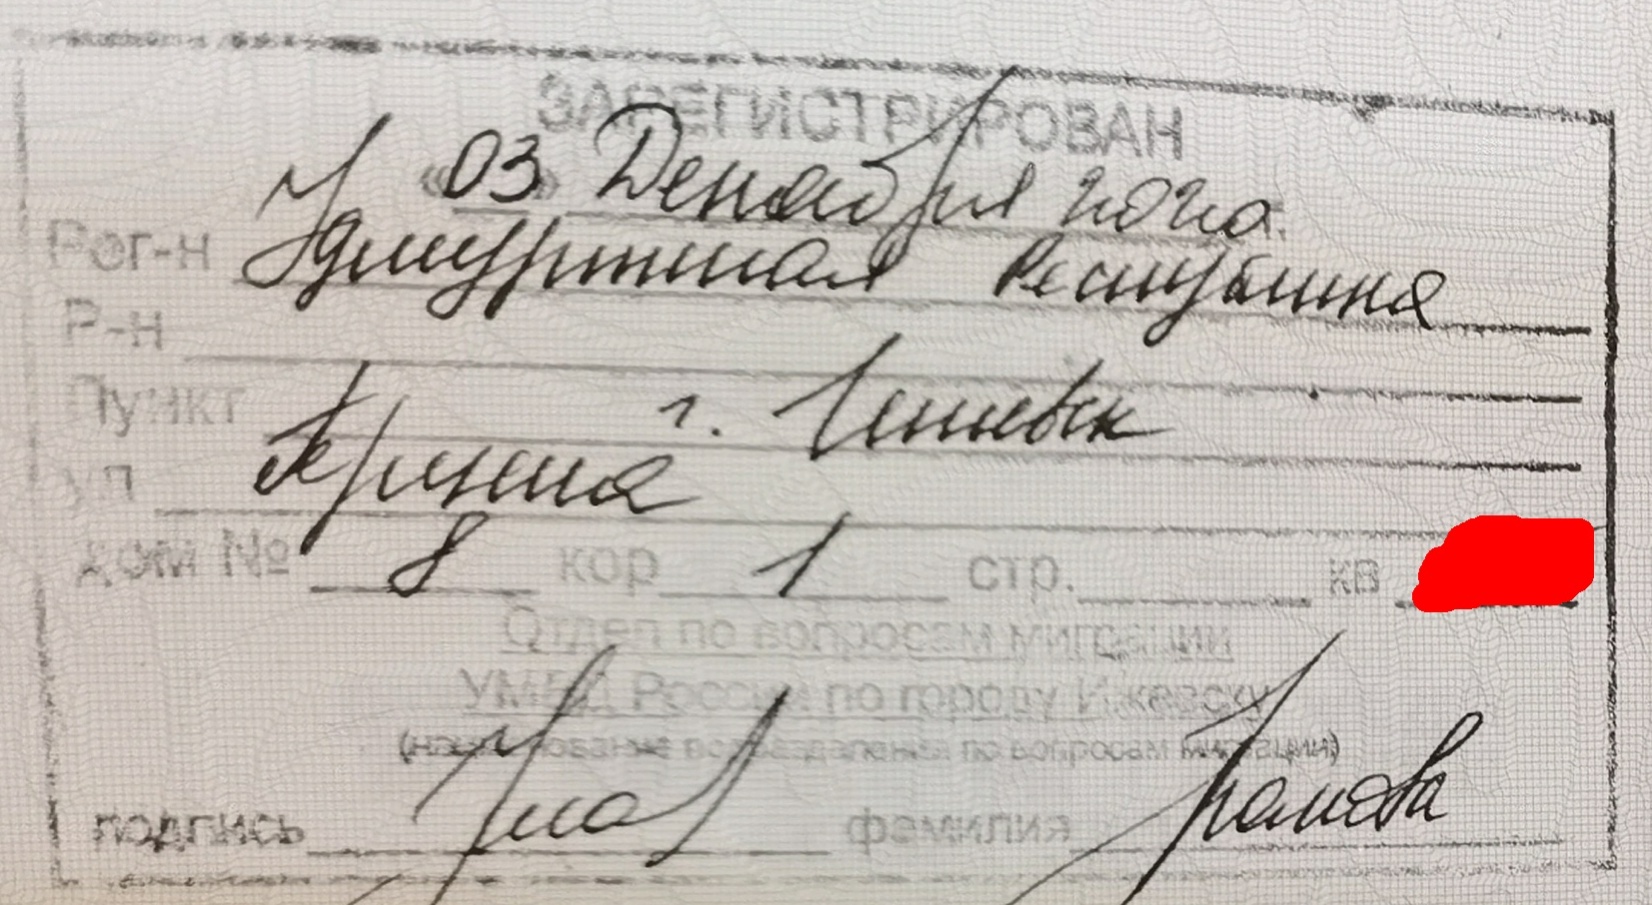 ЗАРЕГИСТРИРОВАН
«03» Декабря 2020г.
Рег-н Удмуртская Республика
Р-н
Пункт г. Ижевск
ул Крупная
дом № 8 кор 1 стр. кв
Отдел по вопросам миграции
УМВД России по городу Ижевску
(наименование подразделения по вопросам миграции)
подпись фамилия